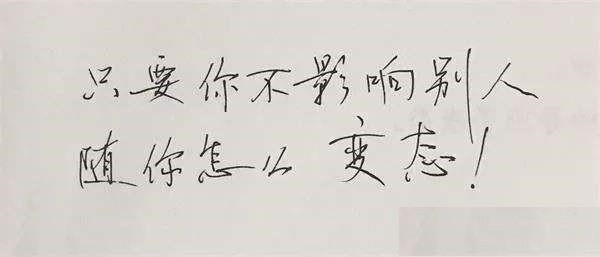 只要你不影响别人
随你怎么变态！